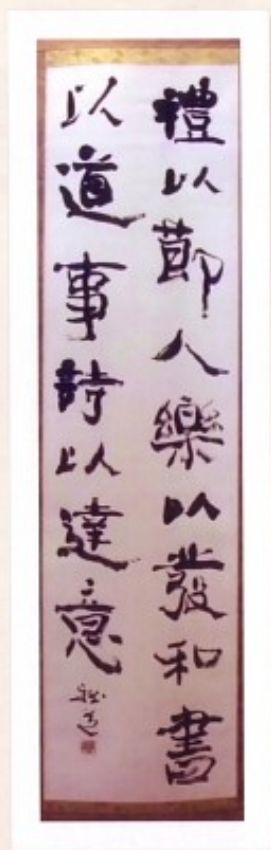 禮以節人樂以發和書
以道事詩以達意